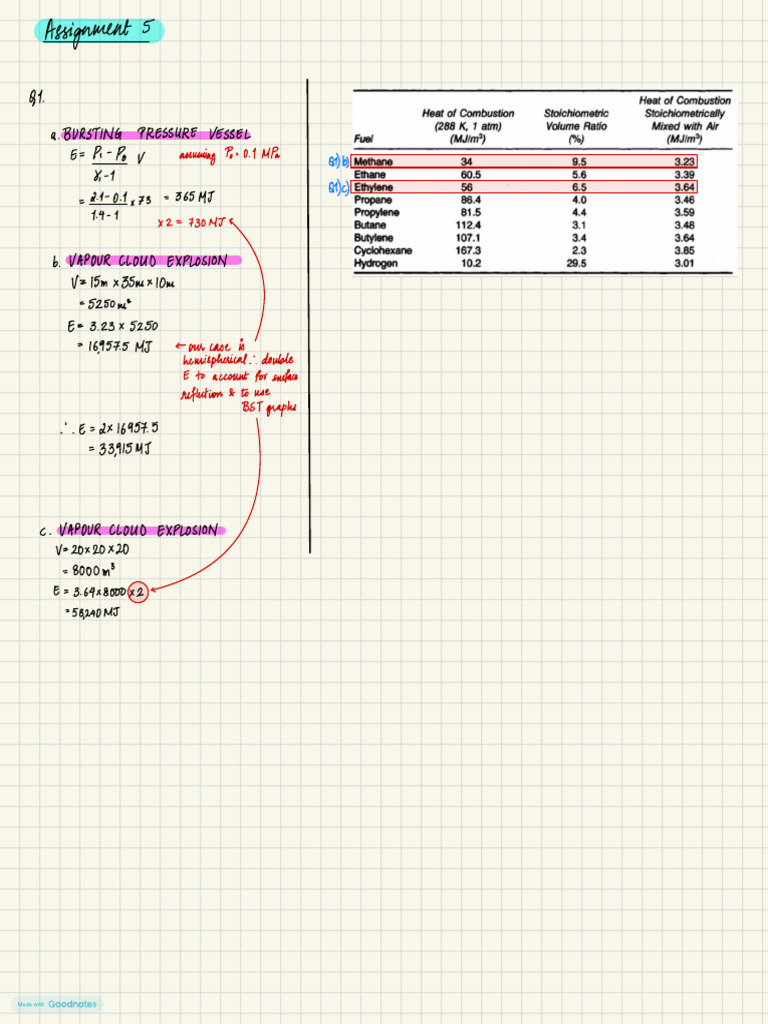 Assignment 5
Q1.
a. BURSTING PRESSURE VESSEL
E = P₁ - P₀ / γ₁ - 1 V
assuming P₀ = 0.1 MPa
= 2.1 - 0.1 / 1.4 - 1 × 73 = 365 MJ
× 2 = 730 MJ
b. VAPOUR CLOUD EXPLOSION
V = 15m × 35m × 10m
= 5250 m³
E = 3.23 × 5250
= 16,957.5 MJ
← our case is
hemispherical ∴ double
E to account for surface
reflection & to use
BST graphs
∴ E = 2 × 16957.5
= 33,915 MJ
c. VAPOUR CLOUD EXPLOSION
V = 20 × 20 × 20
= 8000 m³
E = 3.64 × 8000 × 2
= 58,240 MJ
Fuel Heat of Combustion (288 K, 1 atm) (MJ/m³) Stoichiometric Volume Ratio (%) Heat of Combustion Stoichiometrically Mixed with Air (MJ/m³)
Q1) b) Methane 34 9.5 3.23
Ethane 60.5 5.6 3.39
Q1) c) Ethylene 56 6.5 3.64
Propane 86.4 4.0 3.46
Propylene 81.5 4.4 3.59
Butane 112.4 3.1 3.48
Butylene 107.1 3.4 3.64
Cyclohexane 167.3 2.3 3.85
Hydrogen 10.2 29.5 3.01
Made with Goodnotes